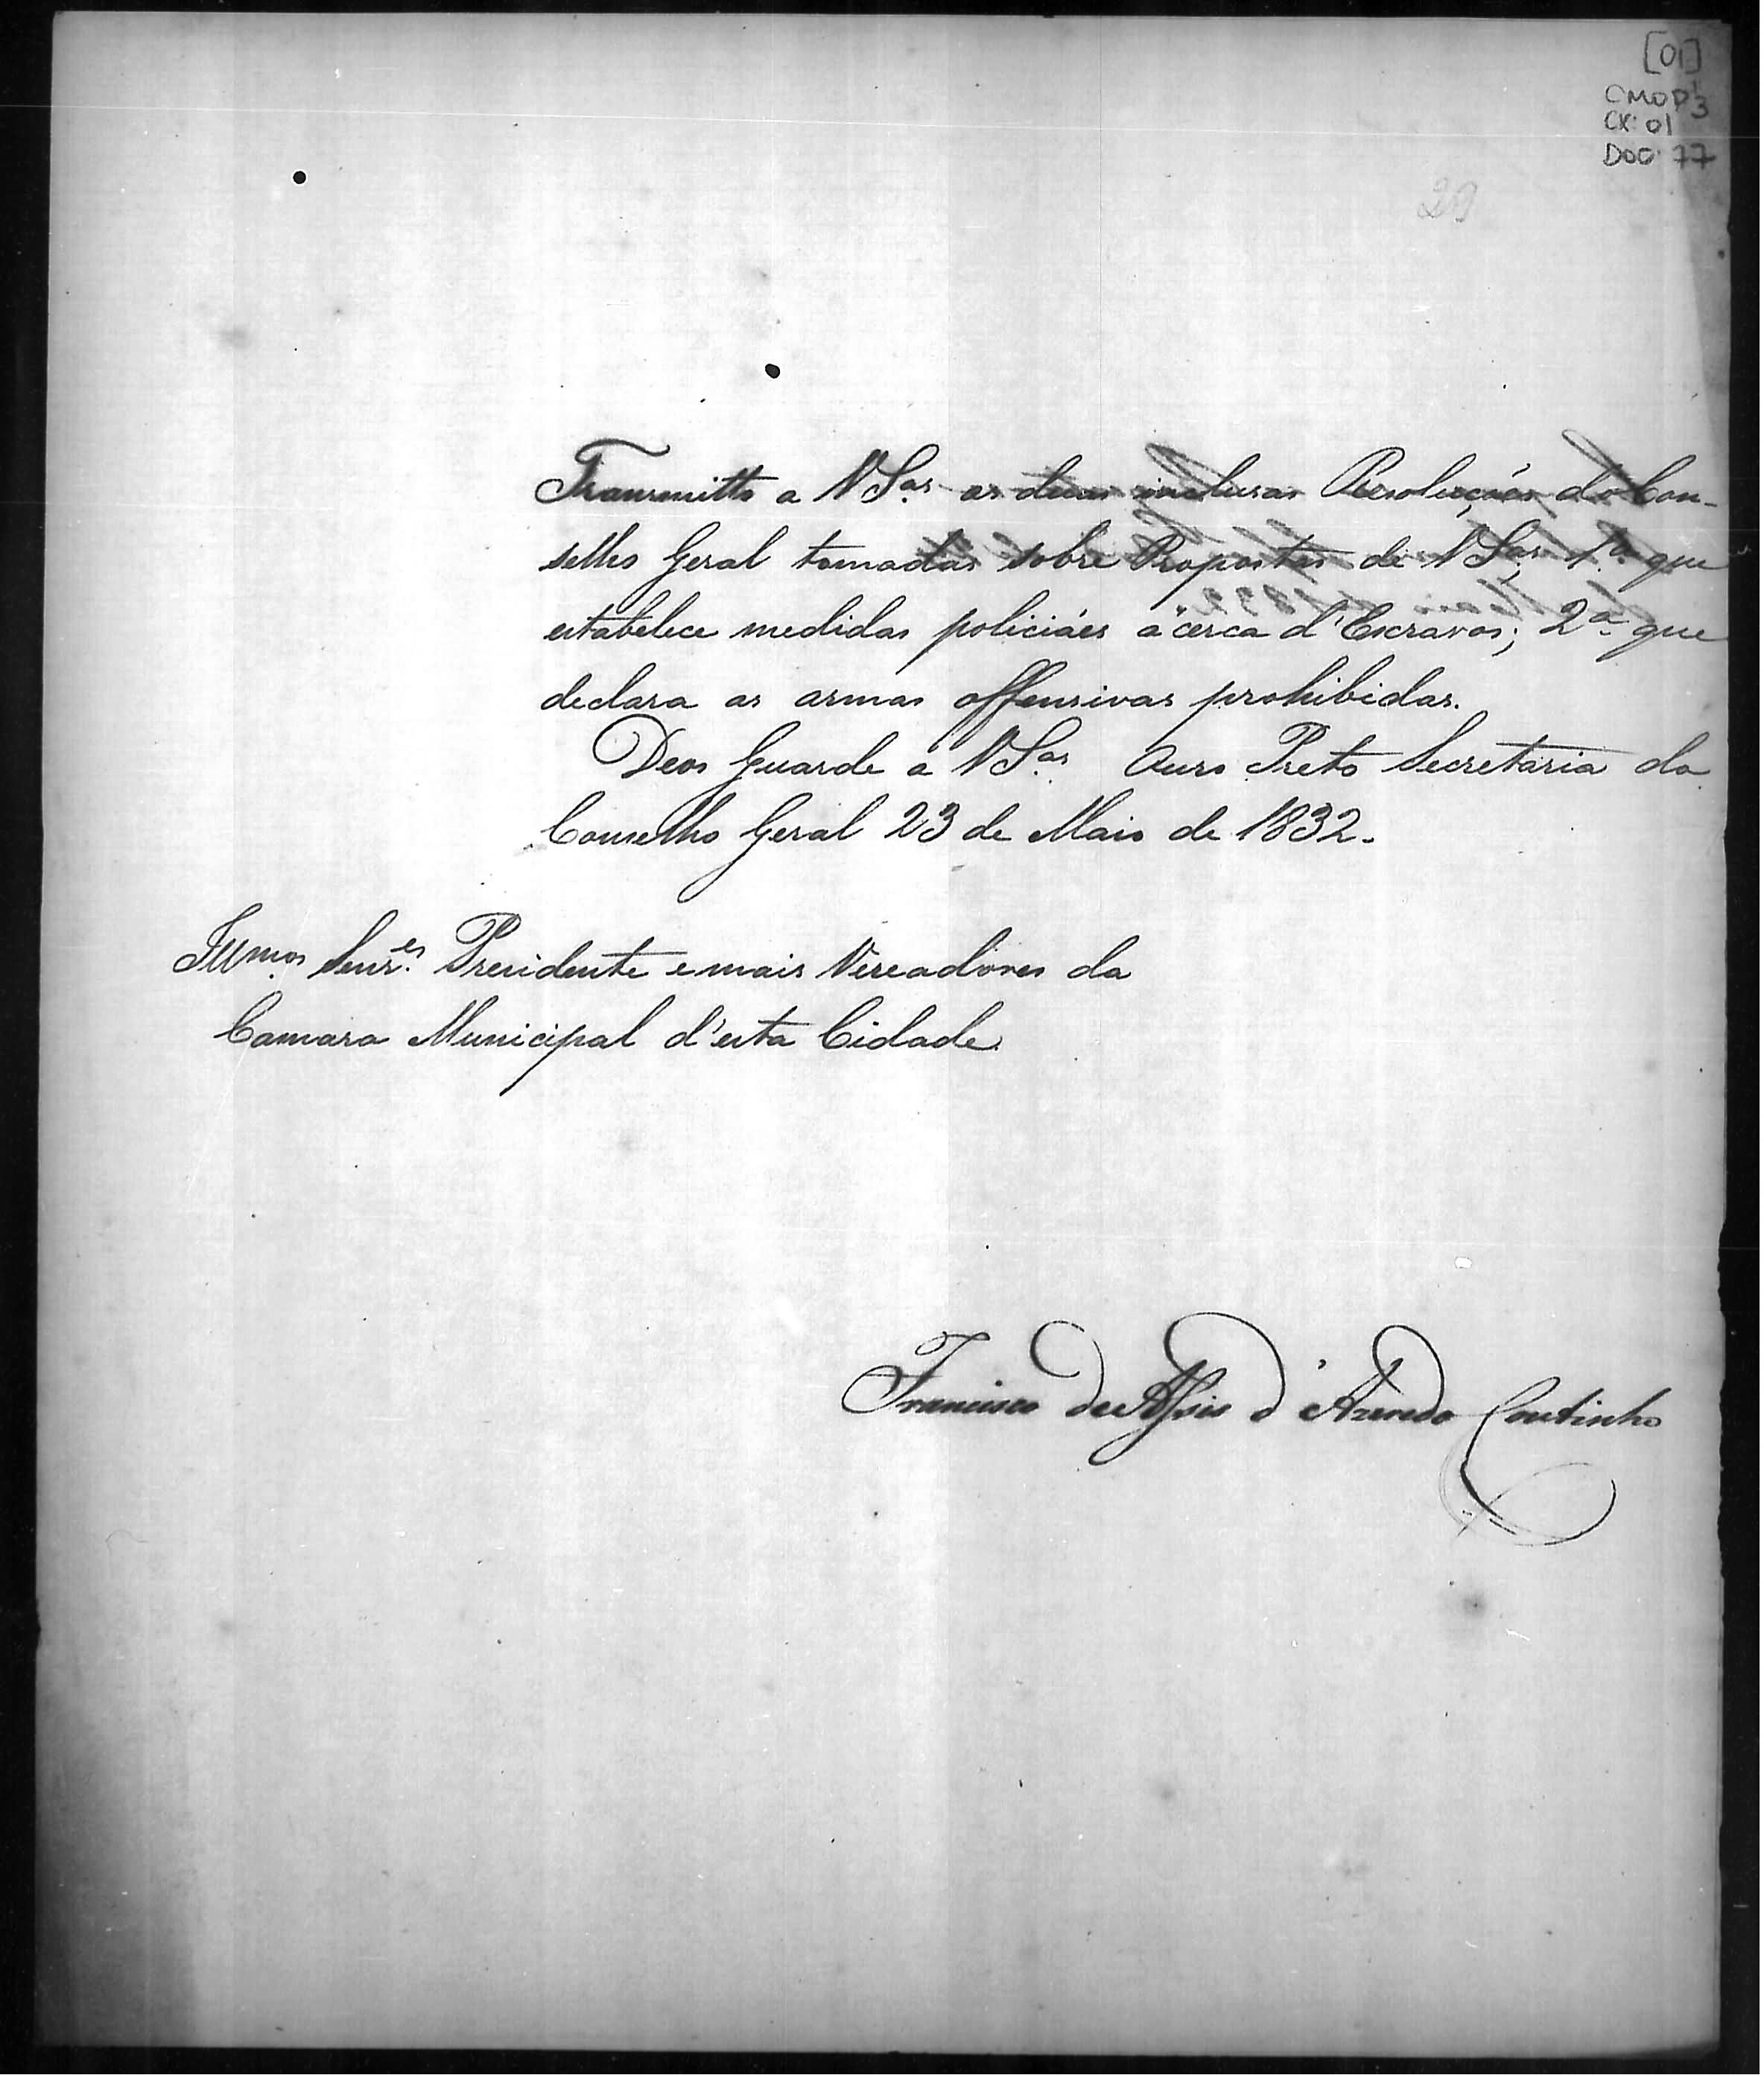 [01]
CMOP 3
CX: 01
DOC: 77
20
Transmitto a V Sas as duas inclusas Resoluções do Con-
selho Geral tomadas sobre Propostas de V Sas, 1.a que
estabelece medidas policiáes ácerca d'Escravos; 2.a que
declara as armas offensivas prohibidas.
Deos Guarde a V Sas Ouro Preto Secretaria do
Conselho Geral 23 de Maio de 1832.
Illmos Senr.es Presidente e mais Vereadores da
Camara Municipal d'esta Cidade
Francisco de Assis d'Azeredo Coutinho